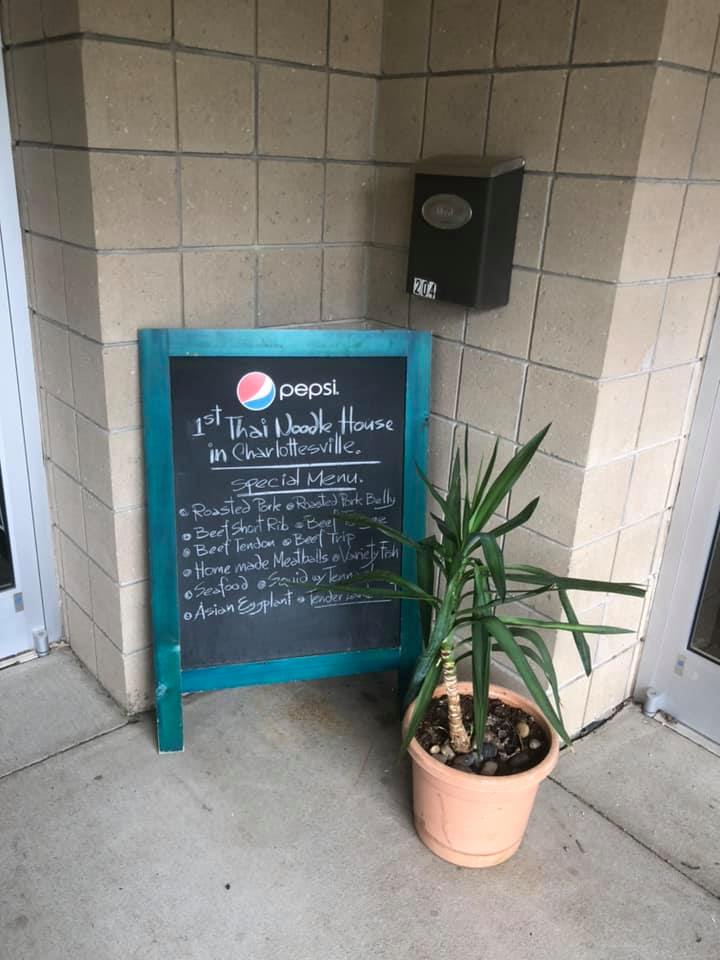 Mail
204
pepsi
1st Thai Noodle House
in Charlottesville.
special Menu.
Roasted Pork Roasted Pork Belly
Beef Short Rib Beef
Beef Tendon Beef Trip
Home made Meatballs Variety Fish
Seafood Squid
Asian Eggplant